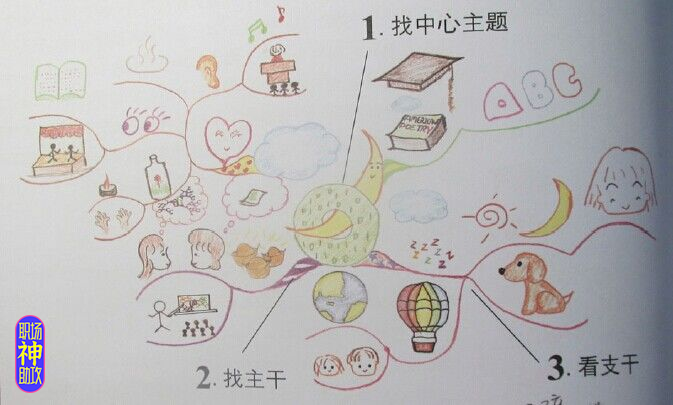 1. 找中心主题
ABC
AMERICAN
POETRY
zzzzzz
2. 找主干
3. 看支干
职场
神
助攻